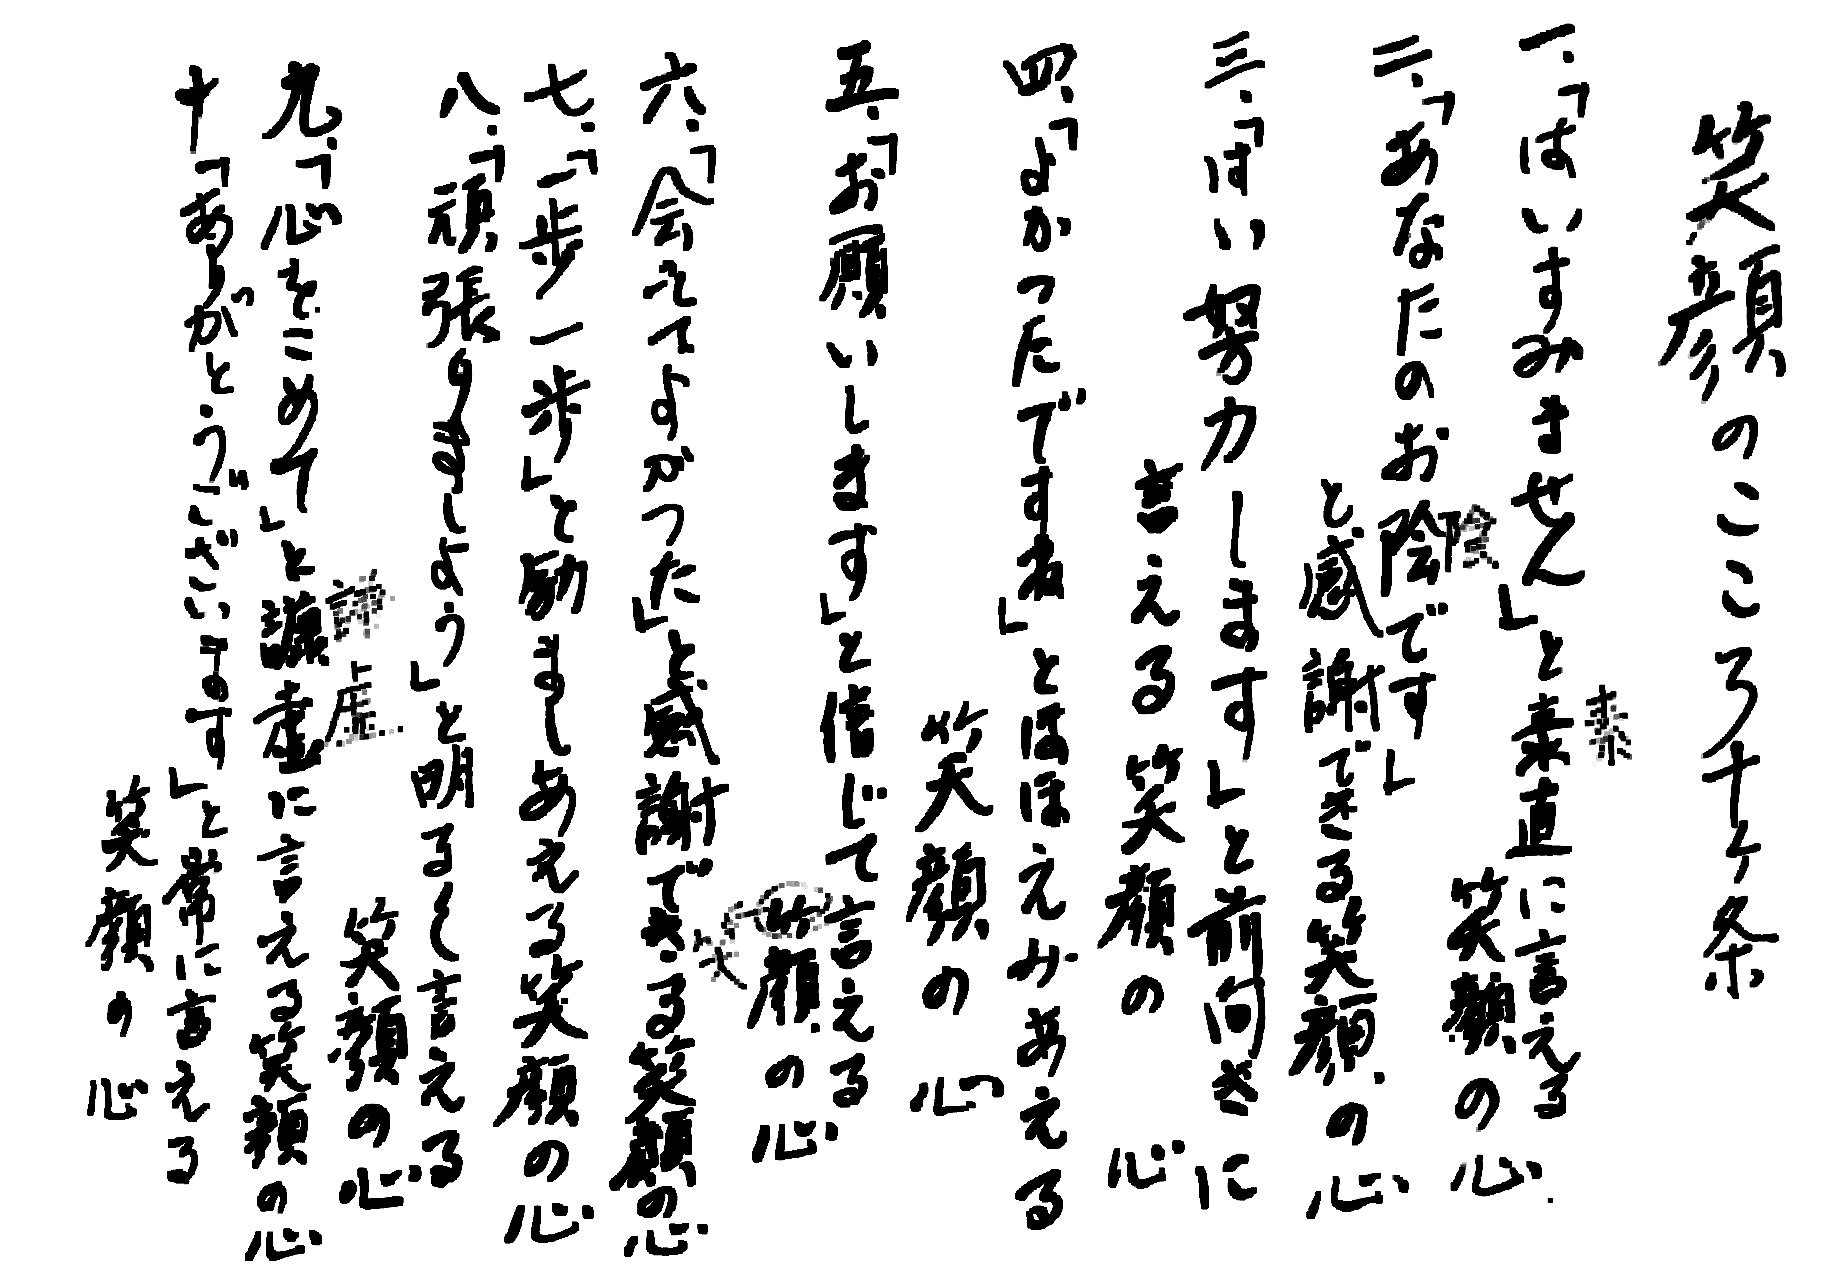 笑顔のこころ十ヶ条
一、「はいすみません」と素直に言える
笑顔の心
素
二、「あなたのお陰です」
陰
と感謝できる笑顔の心
三、「はい努力します」と前向きに
言える笑顔の
心
四、「よかったですね」とほほえみあえる
笑顔の
心
五、「お願いします」と信じて言える
笑顔の心
笑
六、「会えてよかった」と感謝できる笑顔の心
七、「一歩一歩」と励ましあえる笑顔の心
八、「頑張りましょう」と明るく言える
笑顔の心
九、「心をこめて」と謙虚に言える笑顔の心
謙虚
十「ありがとうございます」と常に言える
笑顔の心